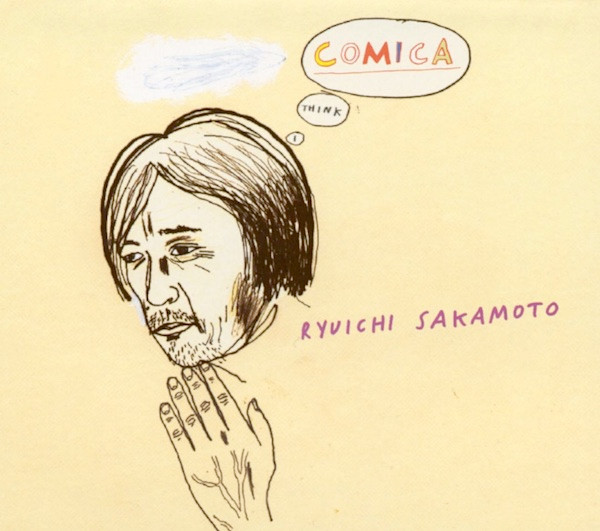 COMICA
THINK
I
RYUICHI SAKAMOTO